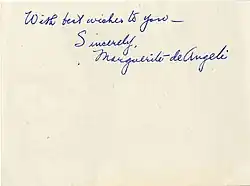 With best wishes to you—
Sincerely,
Marguerite de Angeli